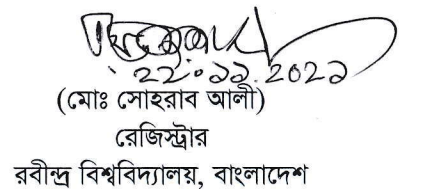 ২২.১১.২০২১
(মোঃ সোহরাব আলী)
রেজিস্ট্রার
রবীন্দ্র বিশ্ববিদ্যালয়, বাংলাদেশ